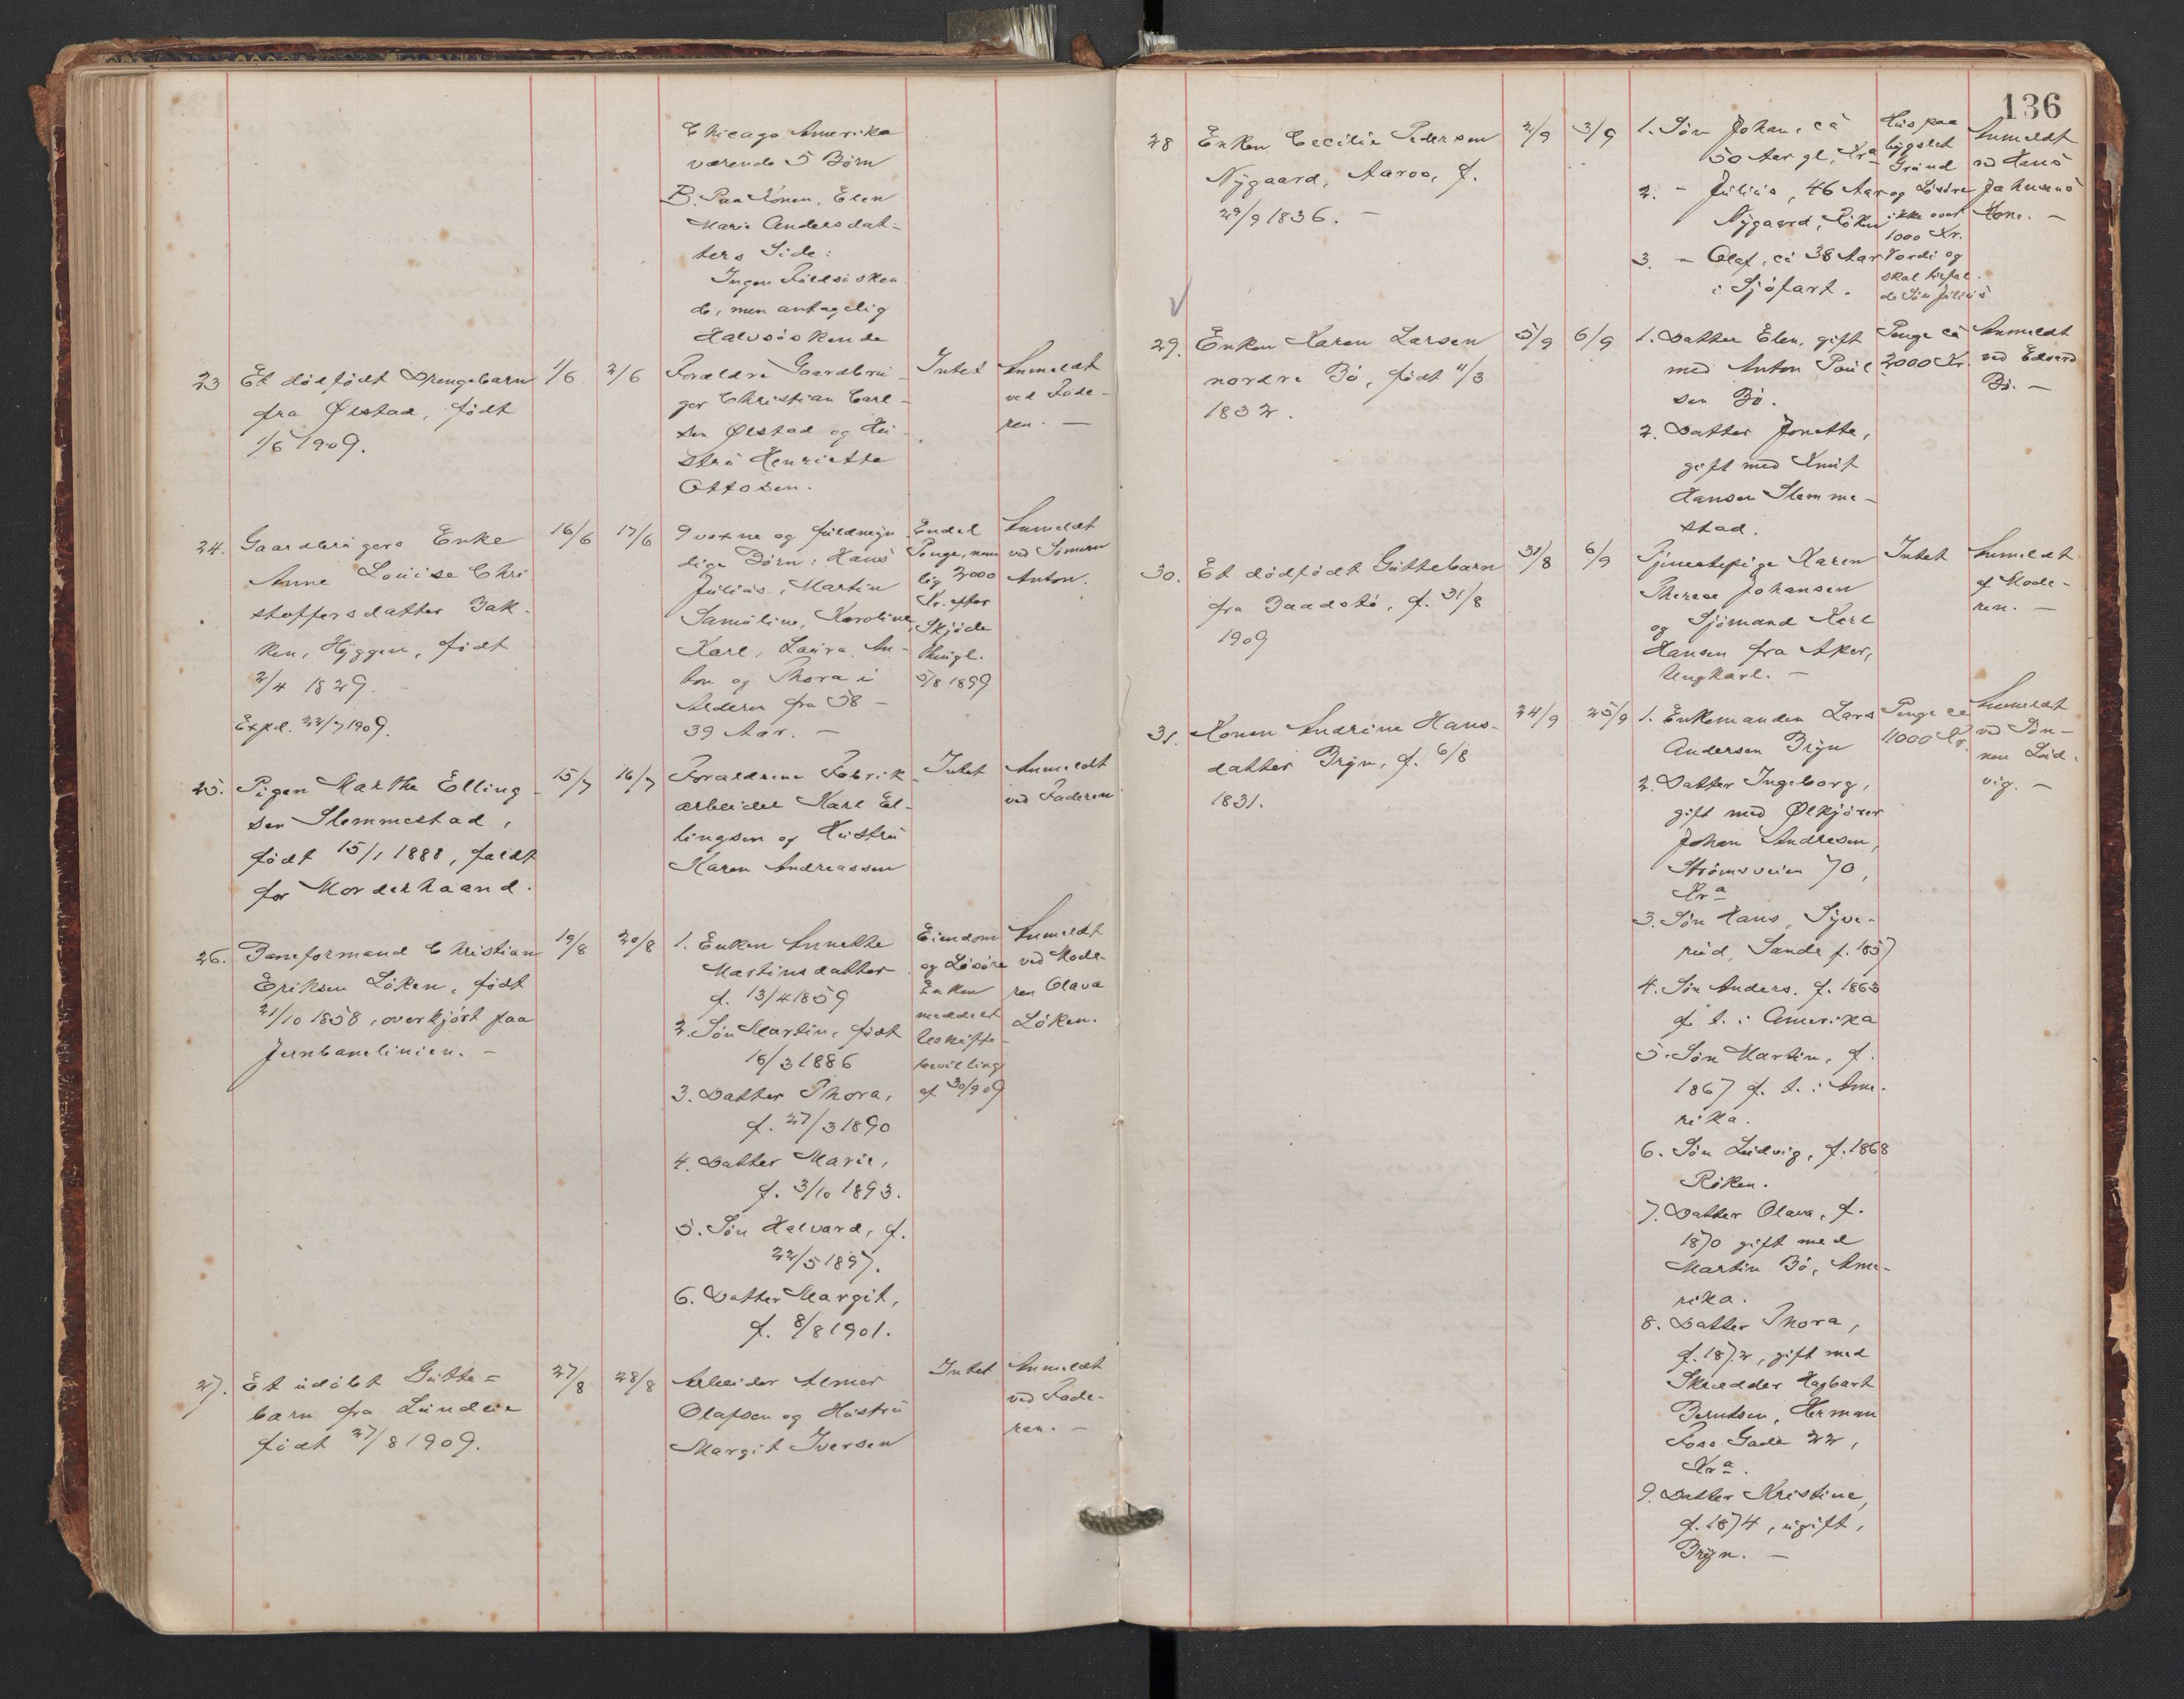 Chicago Amerika
værende 5 Börn
B. Paa Konen, Elen
Marie Andersdat-
ters Side:
Ingen Fuldsösken
de, men antagelig
Halvsöskende
23 Et dödfödt Drengebarn
fra Ølstad, födt
1/6 1909.
1/6
2/6
Forældre Gaardbru-
ger Christian Carl-
sen Ølstad og Hu-
stru Henriette
Ottosen.
Intet
Anmeldt
ved Fade-
ren. —
24. Gaardbrugers Enke
Anne Louise Chri
stoffersdatter Bak-
ken, Hyggen, födt
2/4 1829.
Expd. 22/7 1909.
16/6
17/6
9 voxne og fuldmyn
dige Börn: Hans
Julius, Martin
Samuline, Karoline,
Karl, Laura, An-
ton og Thora i
Alderen fra 58 -
39 Aar. —
Endel
Penge, nem
lig 2000
Kr. efter
Skjöde
thingl.
5/8 1899
Anmeldt
ved Sönnen
Anton.
25. Pigen Marthe Elling-
sen Slemmestad,
födt 15/1 1888, faldt
for Morderhaand.
15/7
16/7
Forældrene Fabrik-
arbeider Karl El-
lingsen og Hustru
Karen Andreassen
Intet
Anmeldt
ved Faderen
26. Baneformand Christian
Eriksen Löken, födt
21/10 1858, overkjört paa
Jernbanelinien. —
19/8
20/8
1. Enken Annette
Martinsdatter
f. 13/4 1859
2. Sön Martin, födt
16/3 1886
3. Datter Thora,
f. 27/3 1890
4. Datter Marie,
f. 3/10 1893.
5. Sön Halvard, f.
22/5 1897.
6. Datter Margit,
f. 8/8 1901.
Eiendom
og Lösöre
Enken
meddelt
Uskifte-
bevilling
af 30/9 09
Anmeldt
ved Mode-
ren Olava
Löken.
27. Et udöbt Gutte=
barn fra Lunden
födt 27/8 1909.
27/8
28/8
Arbeider Almer
Olafsen og Hustru
Margit Iversen
Intet
Anmeldt
ved Fade-
ren. —
136
28 Enken Cecilie Pedersen
Nygaard, Aaros, f.
29/9 1836. —
2/9
3/9
1. Sön Johan, ca
50 Aar gl, Kra
2. - Julius, 46 Aar
Nygaard, Röken
3. - Olaf, ca 38 Aar
i Sjöfart.
Hus paa
bygslet
Grund
og Lösöre
ikke over
1000 Kr.
Værdi og
skal tilfal-
de Sön Julius
Anmeldt
ved Hans
Johnsens
Kone. —
29. Enken Karen Larsen
nordre Bö, födt 11/3
1832.
5/9
6/9
1. Datter Elen, gift
med Anton Paul
sen Bö.
2. Datter Jonette,
gift med Knut
Hansen Slemme-
stad.
Penge ca
2000 Kr.
Anmeldt
ved Edvard
Bö. —
30. Et dödfödt Guttebarn
fra Baadstö, f. 31/8
1909
31/8
6/9
Tjenestepige Karen
Therese Johansen
og Sjömand Karl
Hansen fra Aker,
Ungkarl. —
Intet
Anmeldt
af Mode-
ren. —
31. Konen Andrine Hans-
datter Bryn, f. 6/8
1831.
24/9
25/9
1. Enkemanden Lars
Andersen Bryn
2. Datter Ingeborg,
gift med Ølkjörer
Johan Andresen,
Strömsveien 70,
Kra
3. Sön Hans, Syve-
rud, Sande f. 1857
4. Sön Anders. f. 1863
f. t. i Amerika
5. Sön Martin, f.
1867 f. t. i Ame-
rika.
6. Sön Ludvig, f. 1868
Röken.
7. Datter Olava, f.
1870 gift med
Martin Bö, Ame-
rika.
8. Datter Thora,
f. 1872, gift med
Skrædder Hagbart
Berntsen, Herman
Foss Gade 22,
Kra.
9. Datter Kristine,
f. 1874, ugift,
Bryn. —
Penge ca
4000 Kr.
Anmeldt
ved Sön-
nen Lud-
vig. —